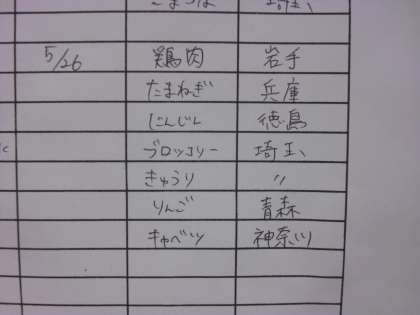 こまつな 埼玉
5/26 鶏肉 岩手
たまねぎ 兵庫
にんじん 徳島
ブロッコリー 埼玉
きゅうり 〃
りんご 青森
キャベツ 神奈川